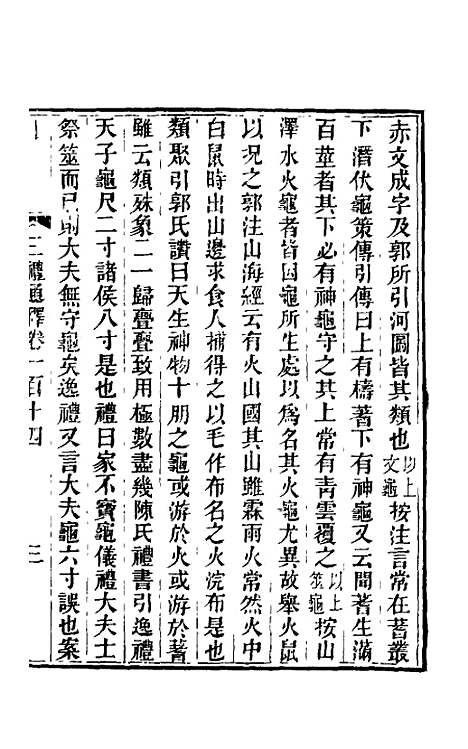 赤文成字及郭所引河圖皆其類也以上文龜按注言常在蓍叢
下潛伏龜策傳引傳曰上有檮蓍下有神龜又云聞蓍生滿
百莖者其下必有神龜守之其上常有青雲覆之以上筮龜按山
澤水火龜者皆因龜所生處以為名其火龜尤異故舉火鼠
以况之郭注山海經云有火山國其山雖霖雨火常然火中
白鼠時出山邊求食人捕得之以毛作布名之火浣布是也
類聚引郭氏讚曰天生神物十朋之龜或游於火或游於蓍
雖云類殊象二一歸亹亹致用極數盡幾陳氏禮書引逸禮
天子龜尺二寸諸侯八寸是也禮曰家不寶龜儀禮大夫士
祭筮而已則大夫無守龜矣逸禮又言大夫龜六寸誤也案
三禮通釋卷一百十四 三